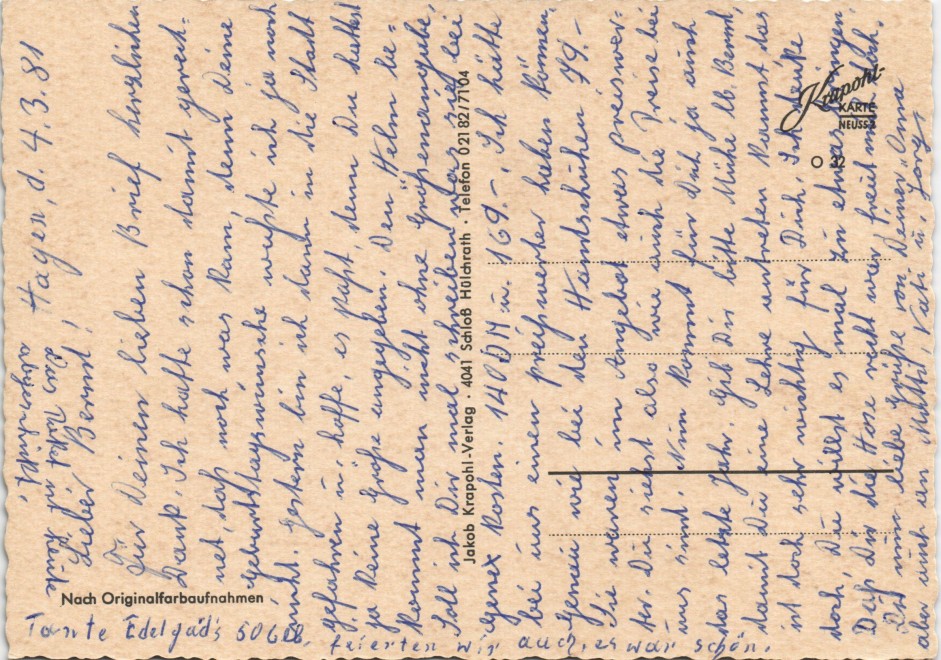 Hagen, d. 4.3.81
Lieber Bernd!
Für Deinen lieben Brief herzlichen
Dank. Ich hatte schon damit gerech-
net, daß noch was kam, denn Deine
Geburtstagswünsche wußte ich ja noch
nicht. Gestern bin ich dann in die Stadt
gefahren u. hoffe, es paßt, denn Du hattest
ja keine Größe angegeben. Den Helm be-
kommt man nicht ohne Größenangabe.
Soll ich Dir mal schreiben was sie bei
kosten. 140 DM u. 169.-. Ich hätte
bei uns einen preißwerter haben können.
Genau wie bei den Handschuhen 79.-
Sie waren im Angebot etwas preiswer-
ter. Du siehst also wie auch die Preise bei
uns sind. Nun kommt für Dich ja auch
das letzte Jahr. Gib Dir bitte Mühe lb. Bernd,
damit Du eine Lehre antreten kannst das
ist doch sehr wichtig für Dich. Ich denke
doch, Du willst es mal zu etwas bringen.
Daß Dir die Hose recht war, freut mich.
Bist nun liebe Grüße von Deiner Oma
aber auch an Mutti, Vati u. Lores
Das Paket ist heute
abgeschickt.
Tante Edelgad's 50 Geb. feierten wir auch, es war schön.
Nach Originalfarbaufnahmen
Jakob Krapohl-Verlag · 4041 Schloß Hülchrath · Telefon 02182/7104
Krapohl-
KARTE
NEUSS 2
O 32